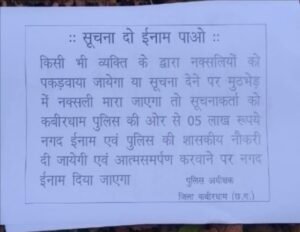 :: सूचना दो ईनाम पाओ ::
किसी भी व्यक्ति के द्वारा नक्सलियों को
पकड़वाया जायेगा या सूचना देने पर मुठभेड़
में नक्सली मारा जाएगा तो सूचनाकर्ता को
कबीरधाम पुलिस की ओर से 05 लाख रूपये
नगद ईनाम एवं पुलिस की शासकीय नौकरी
दी जायेगी एवं आत्मसमर्पण करवाने पर नगद
ईनाम दिया जाएगा
पुलिस अधीक्षक
जिला कबीरधाम (छ.ग.)